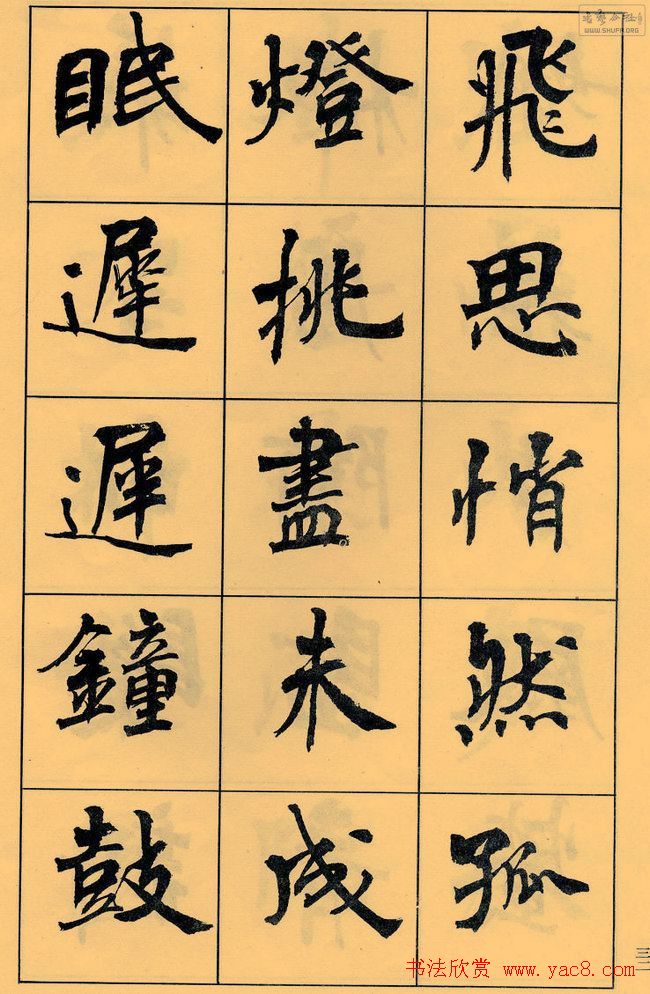 飛思悄然孤
燈挑盡未成
眠遲遲鐘鼓
WWW.SHUFA.ORG
三二
书法欣赏 www.yac8.com